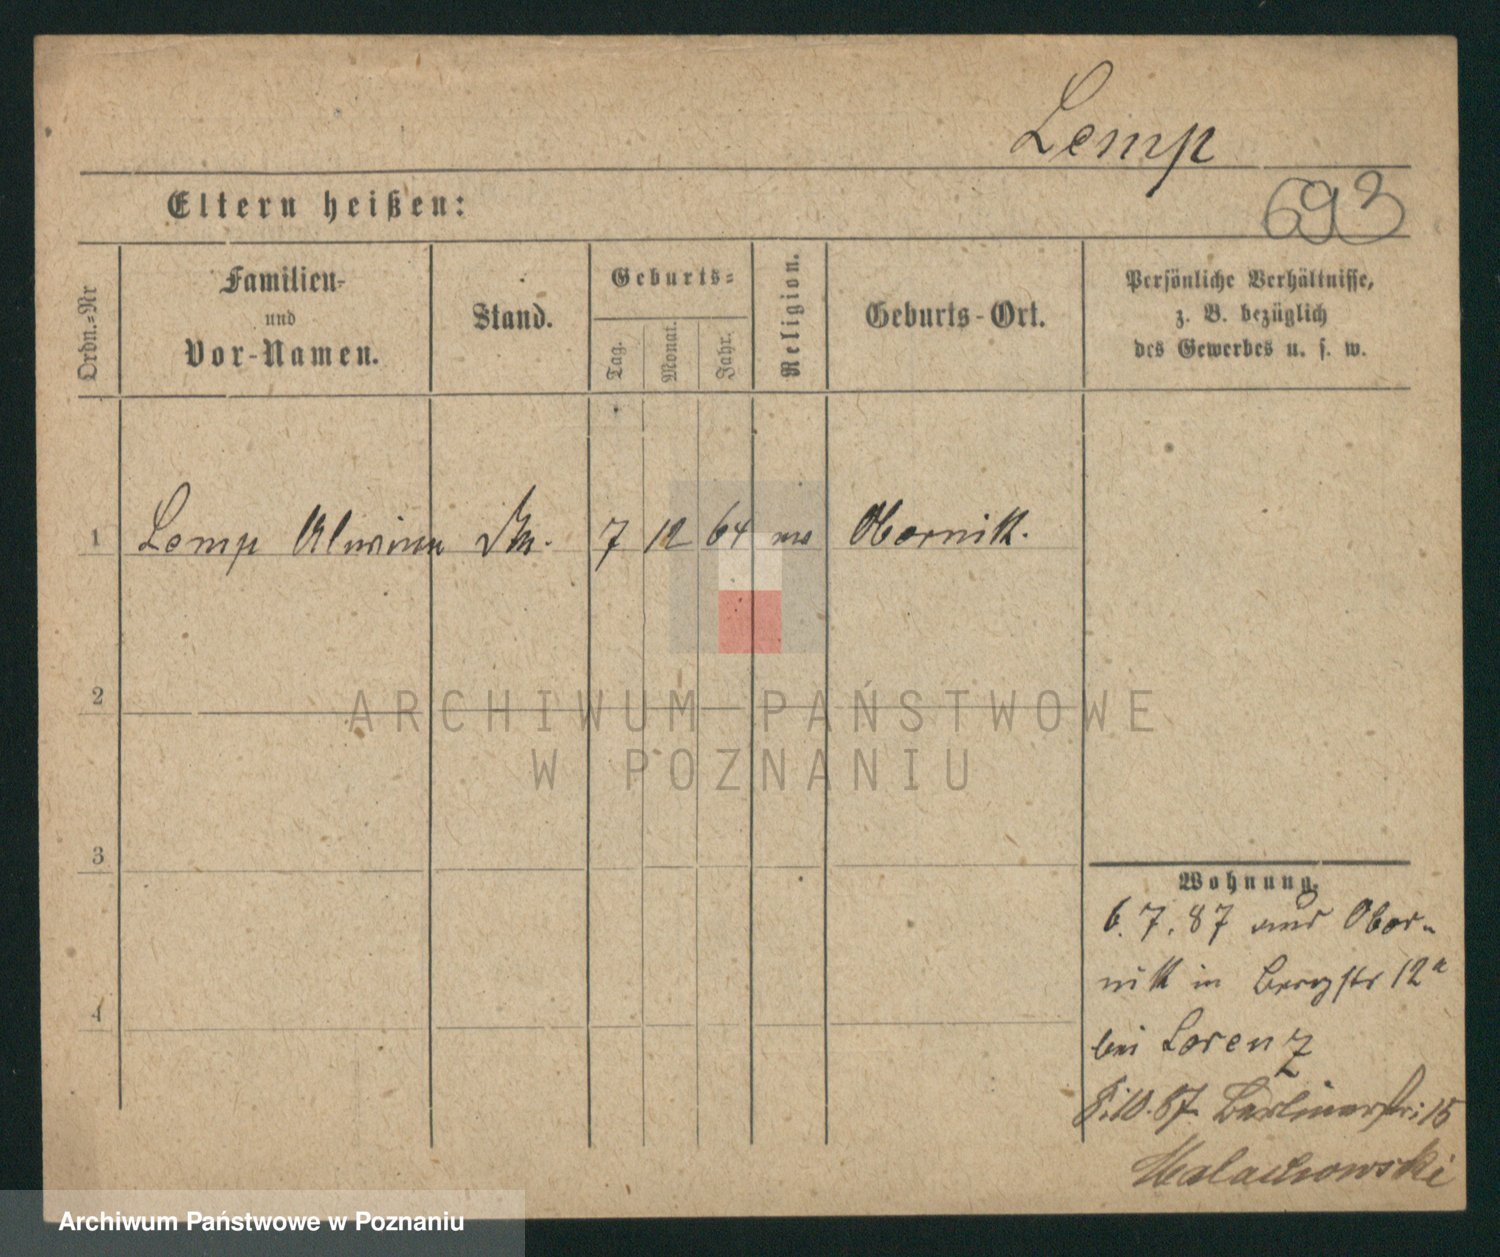 Lemp
693
Eltern heißen:
Ordn.=Nr
Familien-
und
Vor-Namen.
Stand.
Geburts=
Tag.
Monat.
Jahr.
Religion.
Geburts-Ort.
Persönliche Verhältnisse,
z. B. bezüglich
des Gewerbes u. s. w.
1 Lemp Alwine 7 12 64 Obornik.
2
ARCHIWUM PAŃSTWOWE
W POZNANIU
3
4
Wohnung.
6. 7. 87 aus Obor-
nik in Bergstr 12a
bei Lorenz
10. 87 Berlinerstr: 15
Malachowski
Archiwum Państwowe w Poznaniu